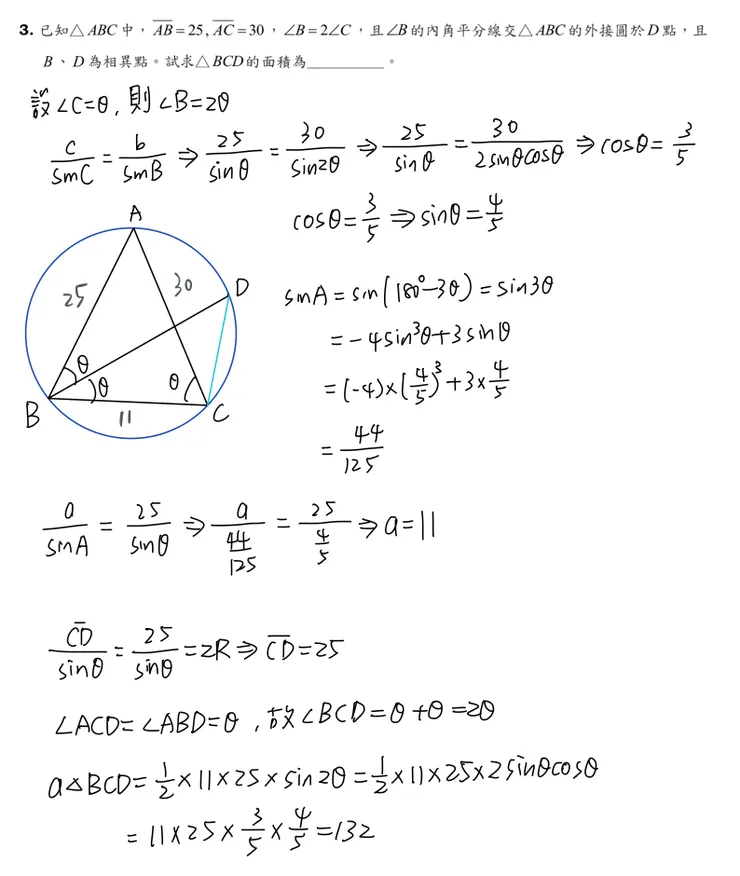 3. 已知△ABC中，AB=25, AC=30，∠B=2∠C，且∠B的內角平分線交△ABC的外接圓於D點，且
B、D為相異點。試求△BCD的面積為__________。
設∠C=θ, 則∠B=2θ
c/sinC = b/sinB ⇒ 25/sinθ = 30/sin2θ ⇒ 25/sinθ = 30/2sinθcosθ ⇒ cosθ = 3/5
cosθ = 3/5 ⇒ sinθ = 4/5
A
25
30
D
θ
θ
θ
B
11
C
sinA = sin(180°-3θ) = sin3θ
= -4sin³θ+3sinθ
= (-4)×(4/5)³+3×4/5
= 44/125
a/sinA = 25/sinθ ⇒ a/(44/125) = 25/(4/5) ⇒ a=11
CD/sinθ = 25/sinθ = 2R ⇒ CD=25
∠ACD=∠ABD=θ, 故∠BCD=θ+θ=2θ
a△BCD = 1/2×11×25×sin2θ = 1/2×11×25×2sinθcosθ
= 11×25×3/5×4/5 = 132